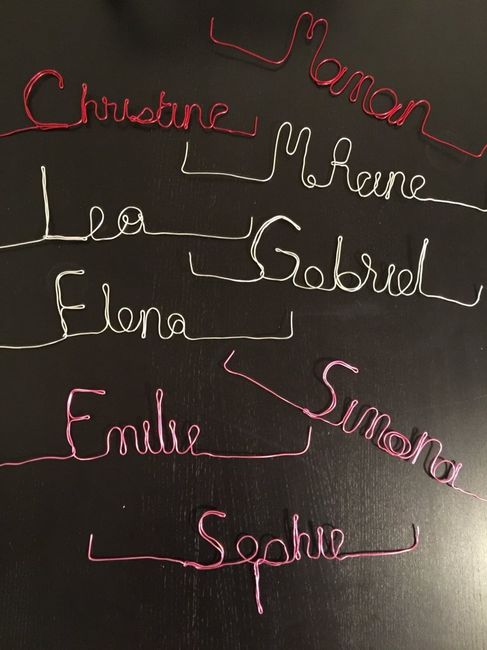 Maman
Christine
Lea
Gabriel
Elena
Simona
Emilie
Sophie